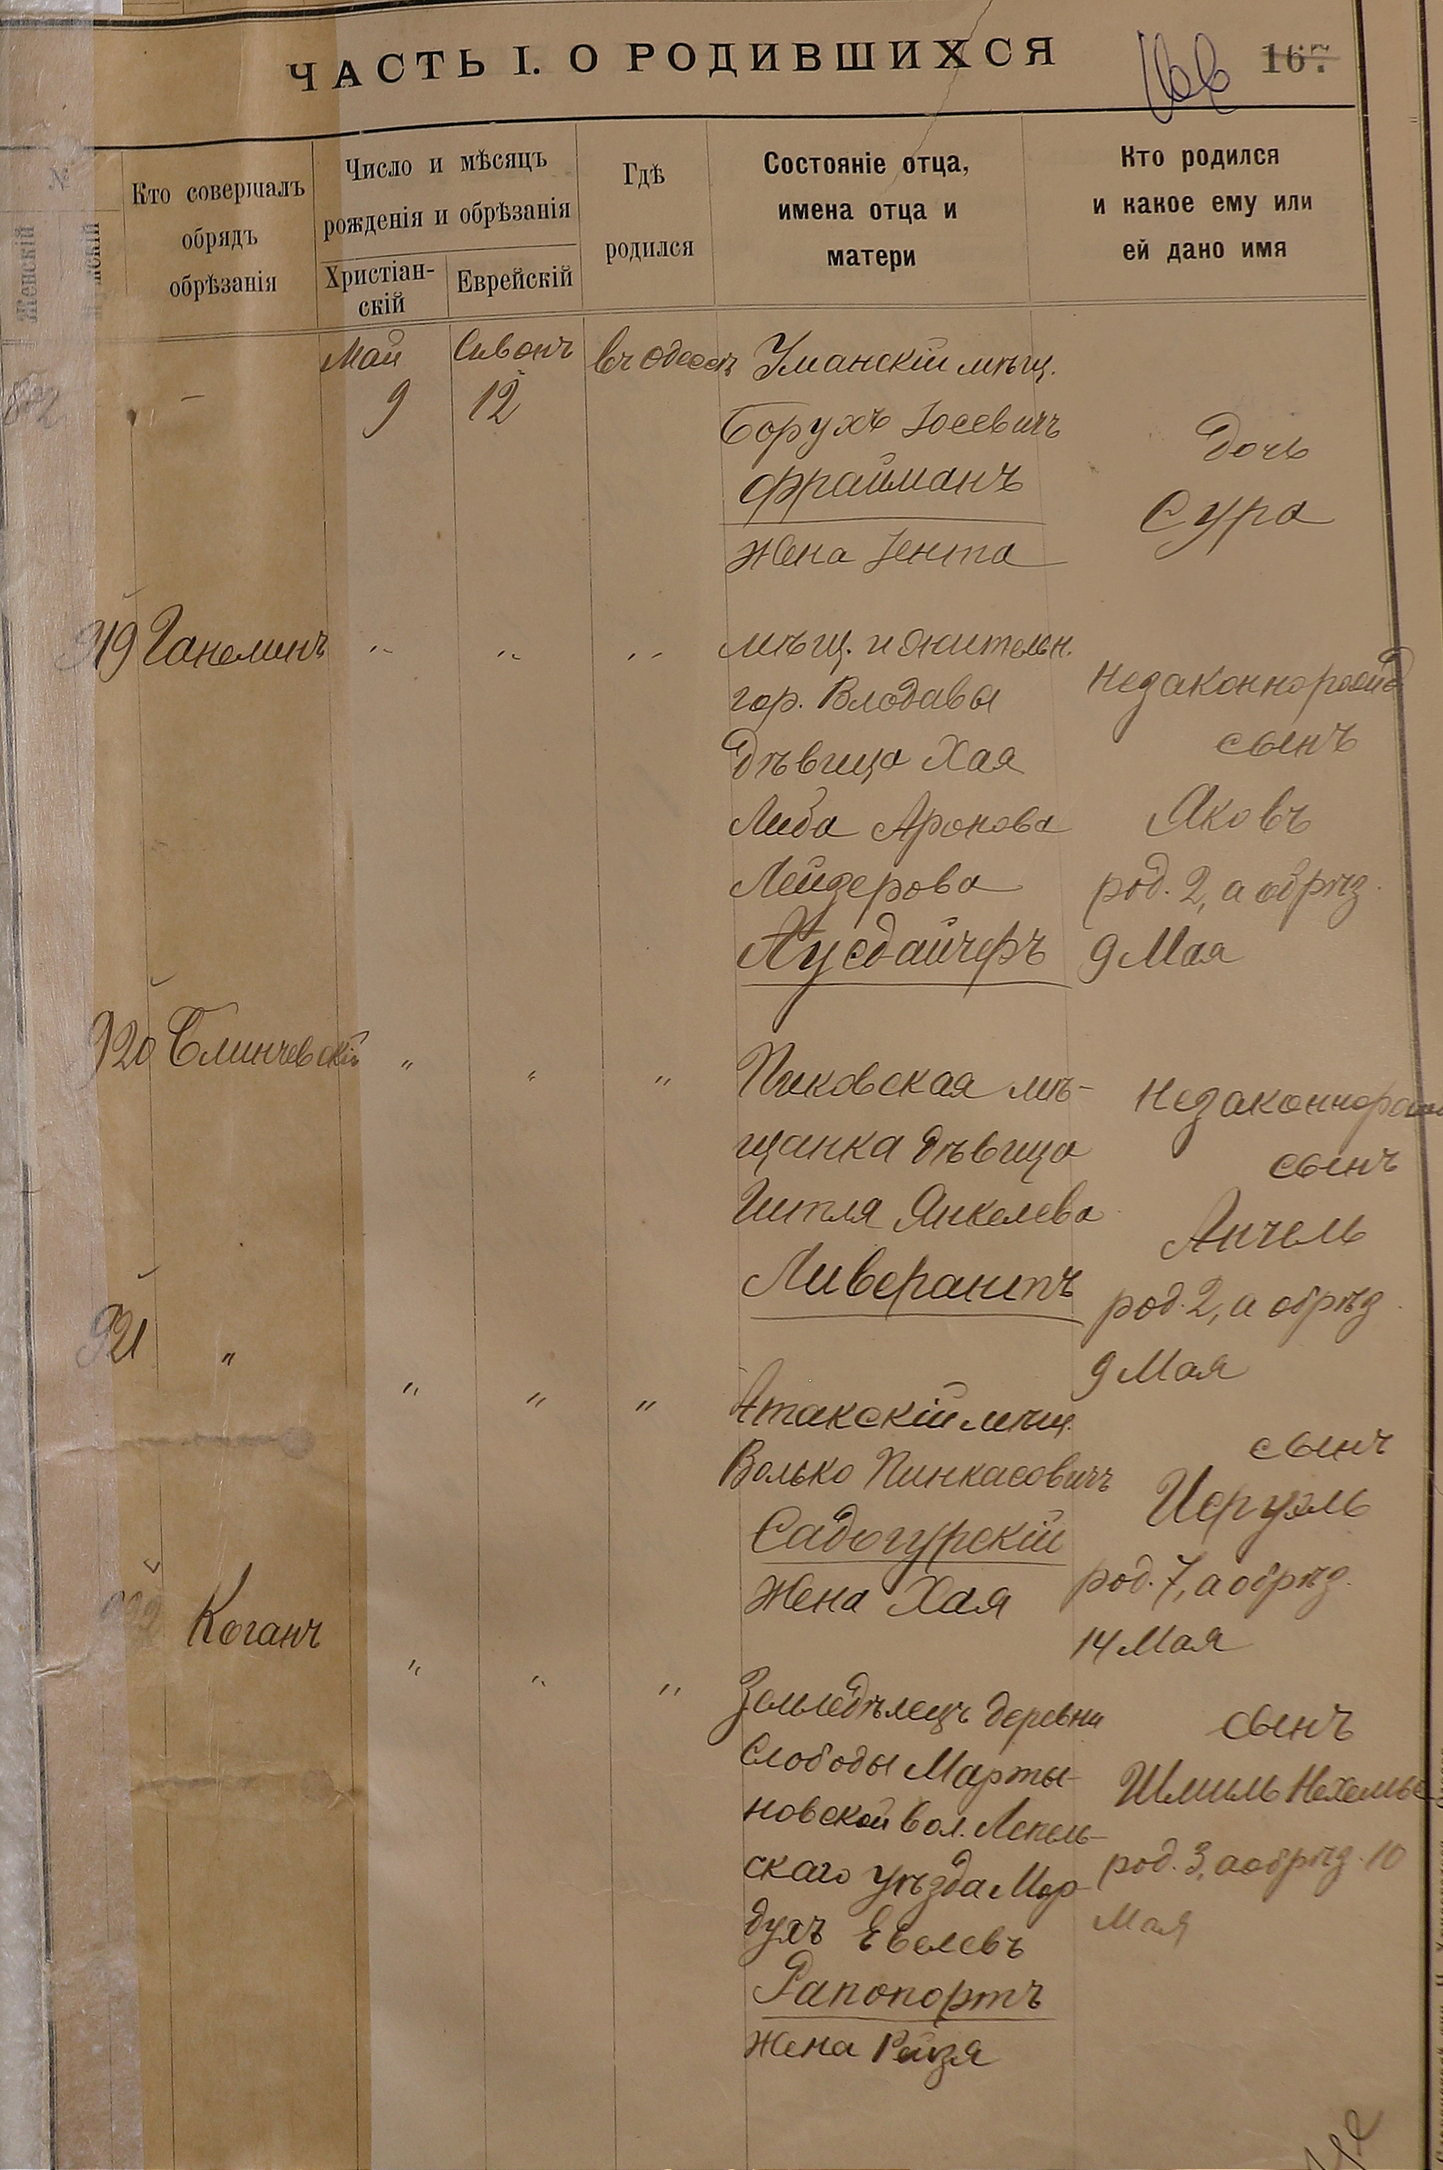 ЧАСТЬ I. О РОДИВШИХСЯ
166
167
№
Женскій
Кто совершалъ
обрядъ
обрѣзанія
Число и мѣсяцъ
рожденія и обрѣзанія
Христіан-
скій
Еврейскій
Гдѣ
родился
Состояніе отца,
имена отца и
матери
Кто родился
и какое ему или
ей дано имя
Май
9
Сивонъ
12
въ Одессѣ
Уманскій мѣщ.
Борухъ Іосевичъ
Фрайманъ
жена Іента
Дочь
Сура
919
" " "
мѣщ. и жительн.
гор. Влодавы
дѣвица Хая
Либа Аронова
Лейзерова
Аусдайчеръ
Незаконнорожд
сынъ
Яковъ
род. 2, а обрѣз.
9 Мая
920 Блинчевскій
" " "
Пиковская мѣ-
щанка дѣвица
Гитля Янкелева
Ливерантъ
Незаконнорож
сынъ
Анчель
род. 2, а обрѣз.
9 Мая
921 "
" " "
Атакскій мѣщ.
Волько Пинкасовичъ
Садогурскій
жена Хая
сынъ
Иеруэль
род. 7, а обрѣз.
14 Мая
922 Коганъ
" " "
Земледѣлецъ деревни
Слободы Марты-
новской вол. Лепель-
скаго уѣзда Мор-
духъ Евелевъ
Рапопортъ
жена Рейзя
сынъ
Шмиль Нехемье
род. 3, а обрѣз. 10
Мая